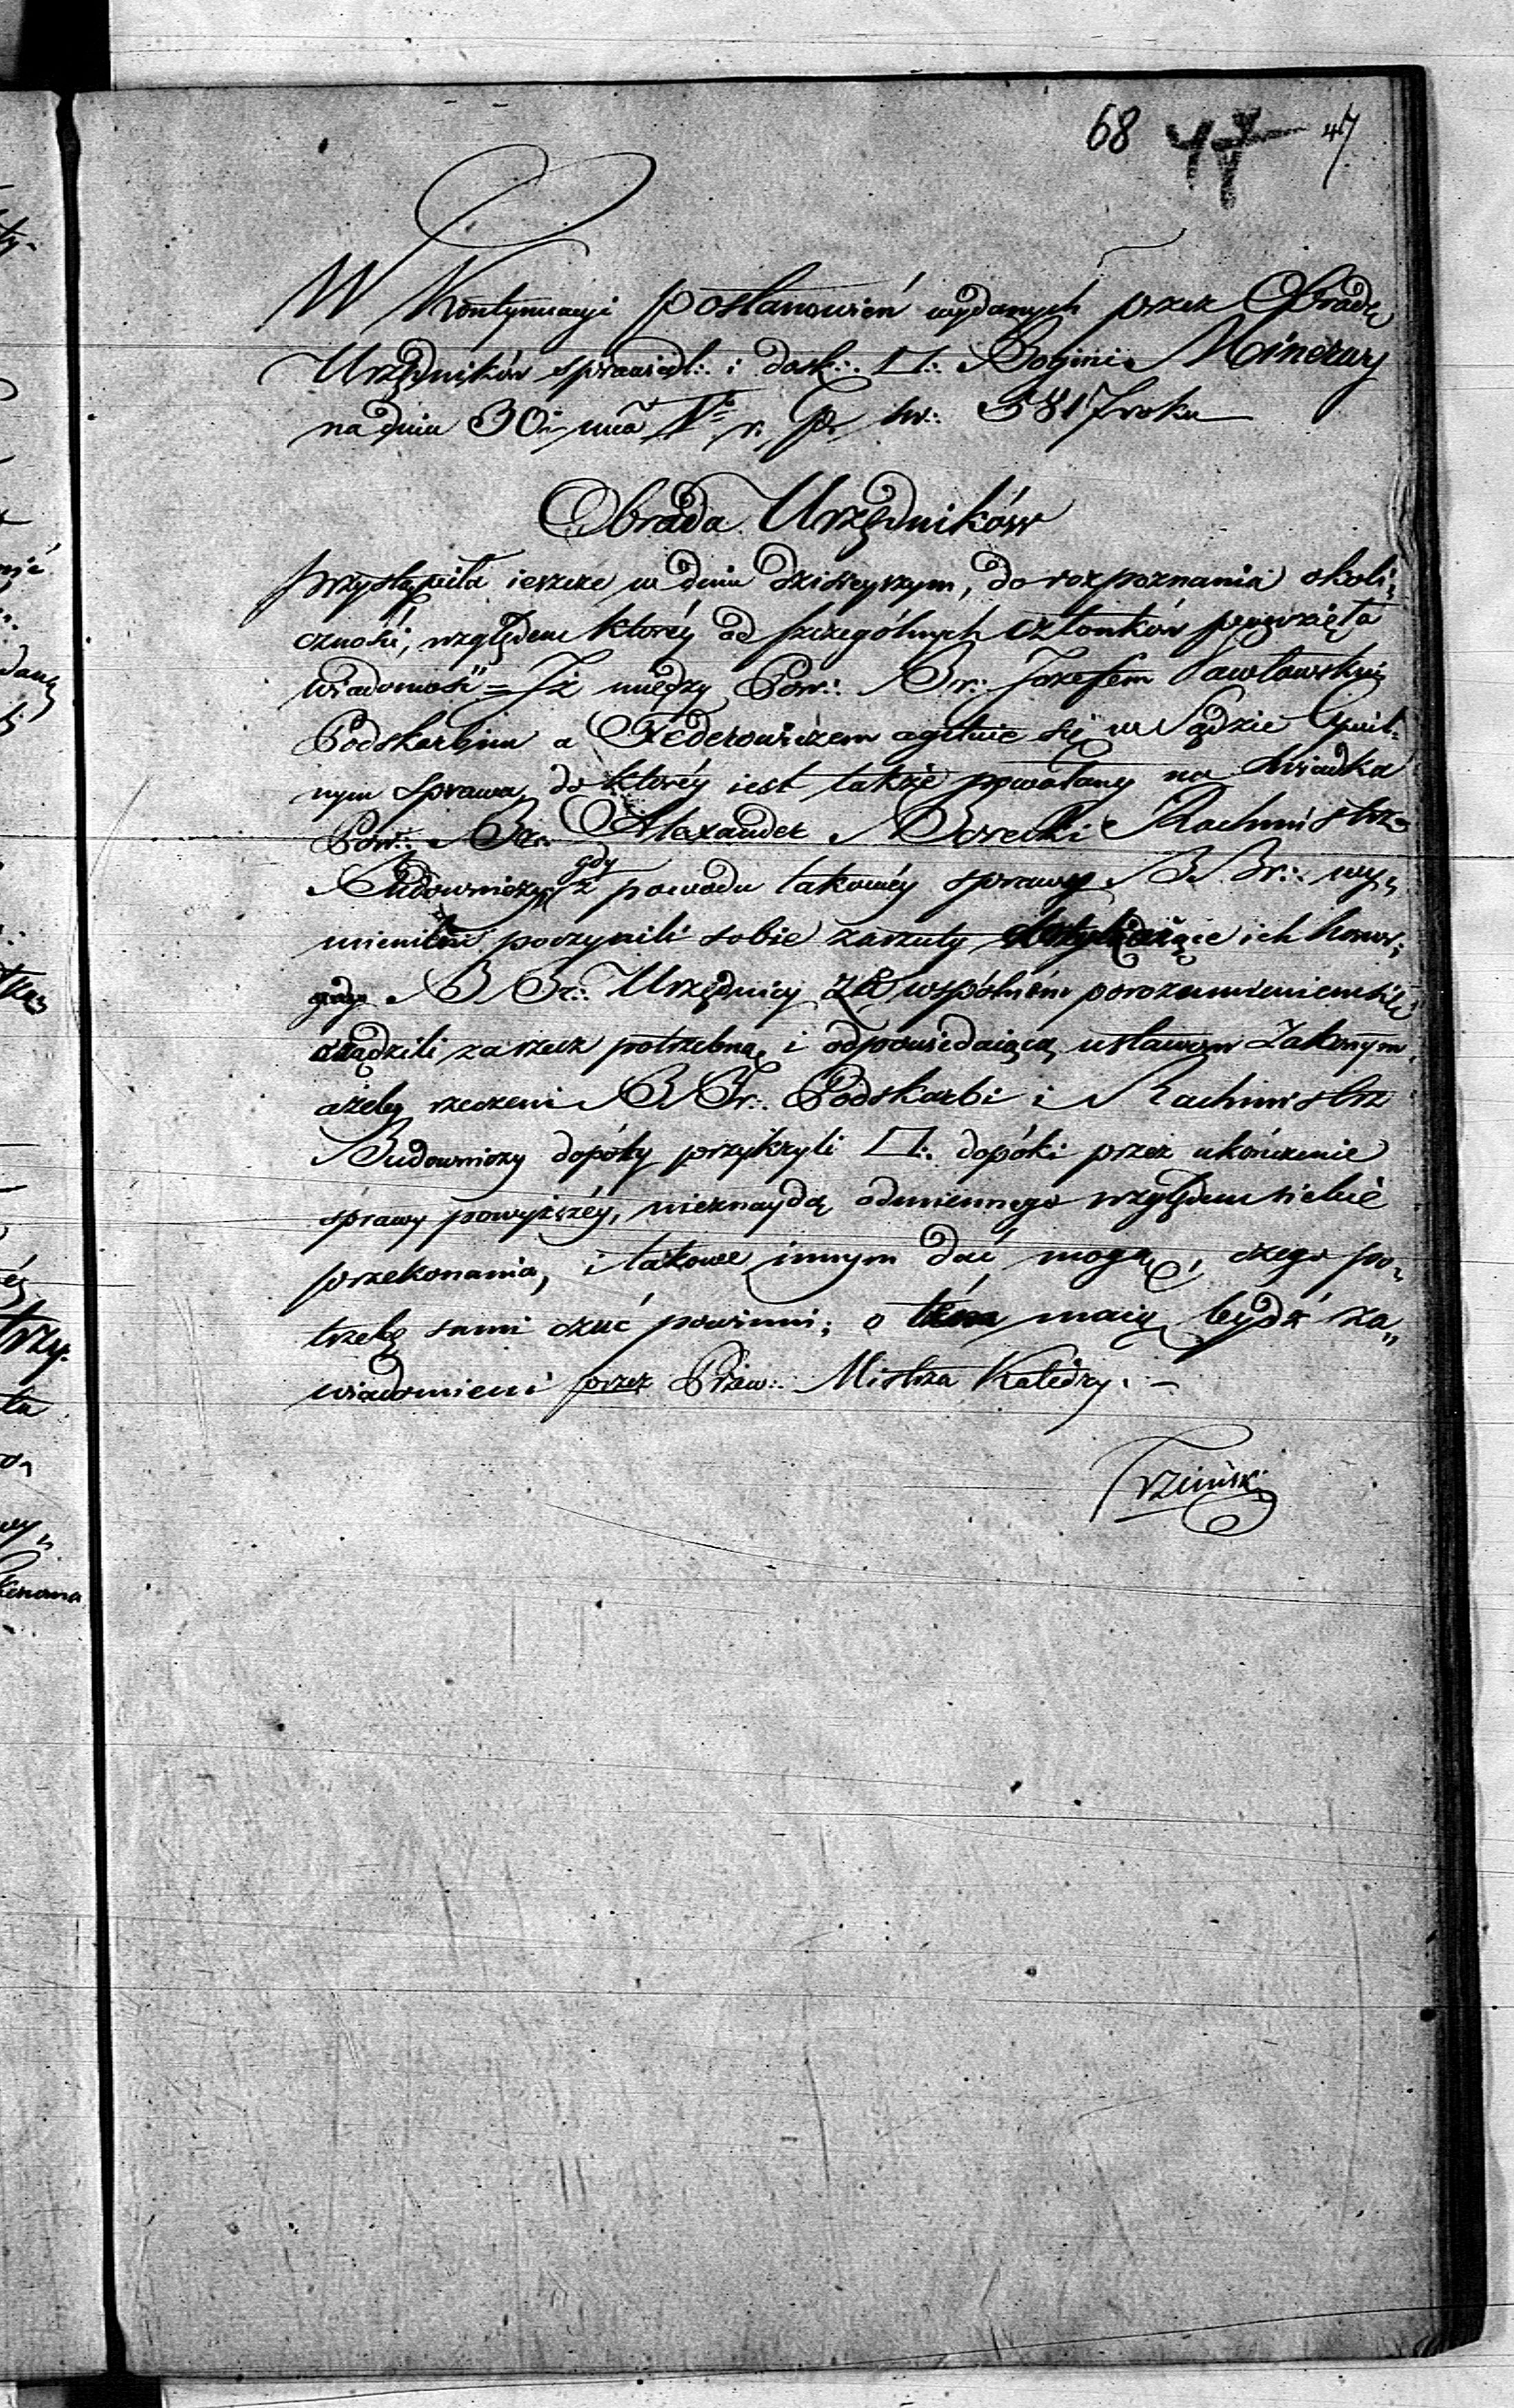 68 47 47
W Kontynuacyi postanowień wydanych przez Obradę
Urzędników sprawiedl∴ i dosk∴ □∴ Bogini Minerwy
na dniu 30 r. p. św∴ 5817 roku
Obrada Urzędników
przystąpiła ieszcze w dniu dzisieyszym, do rozpoznania okoli„
czności, względem któréy od szczególnych członków powzięła
wiadomość = Iż między Pow∴ Br∴ Jozefem Pawłowskim
Podskarbim a Federowiczem agituie się w Sądzie Cywil„
nym sprawa, do któréy iest także powołany na świadka
Pow∴ Br∴ Alexander Borecki Rachmistrz
gdy
Budowniczy, z powodu takowéy sprawy BBr∴ wy„
mienieni poczynili sobie zarzuty ich honor;
BBr∴ Urzędnicy za wspólném porozumieniem się
osądzili za rzecz potrzebną i odpowiedaiącą ustawom Zakonnym,
ażeby rzeczeni BBr∴ Podskarbi i Rachmistrz
Budowniczy dopóty przykryli □∴ dopóki przez ukończenie
sprawy powyższéy, nieznaydą odmiennego względem siebie
przekonania, i takowe innym dać mogą, czego po„
trzebę sami czuć powinni; o tém maią bydź za„
wiadomieni przez Przew∴ Mistrza Katedry. –
Trzciński